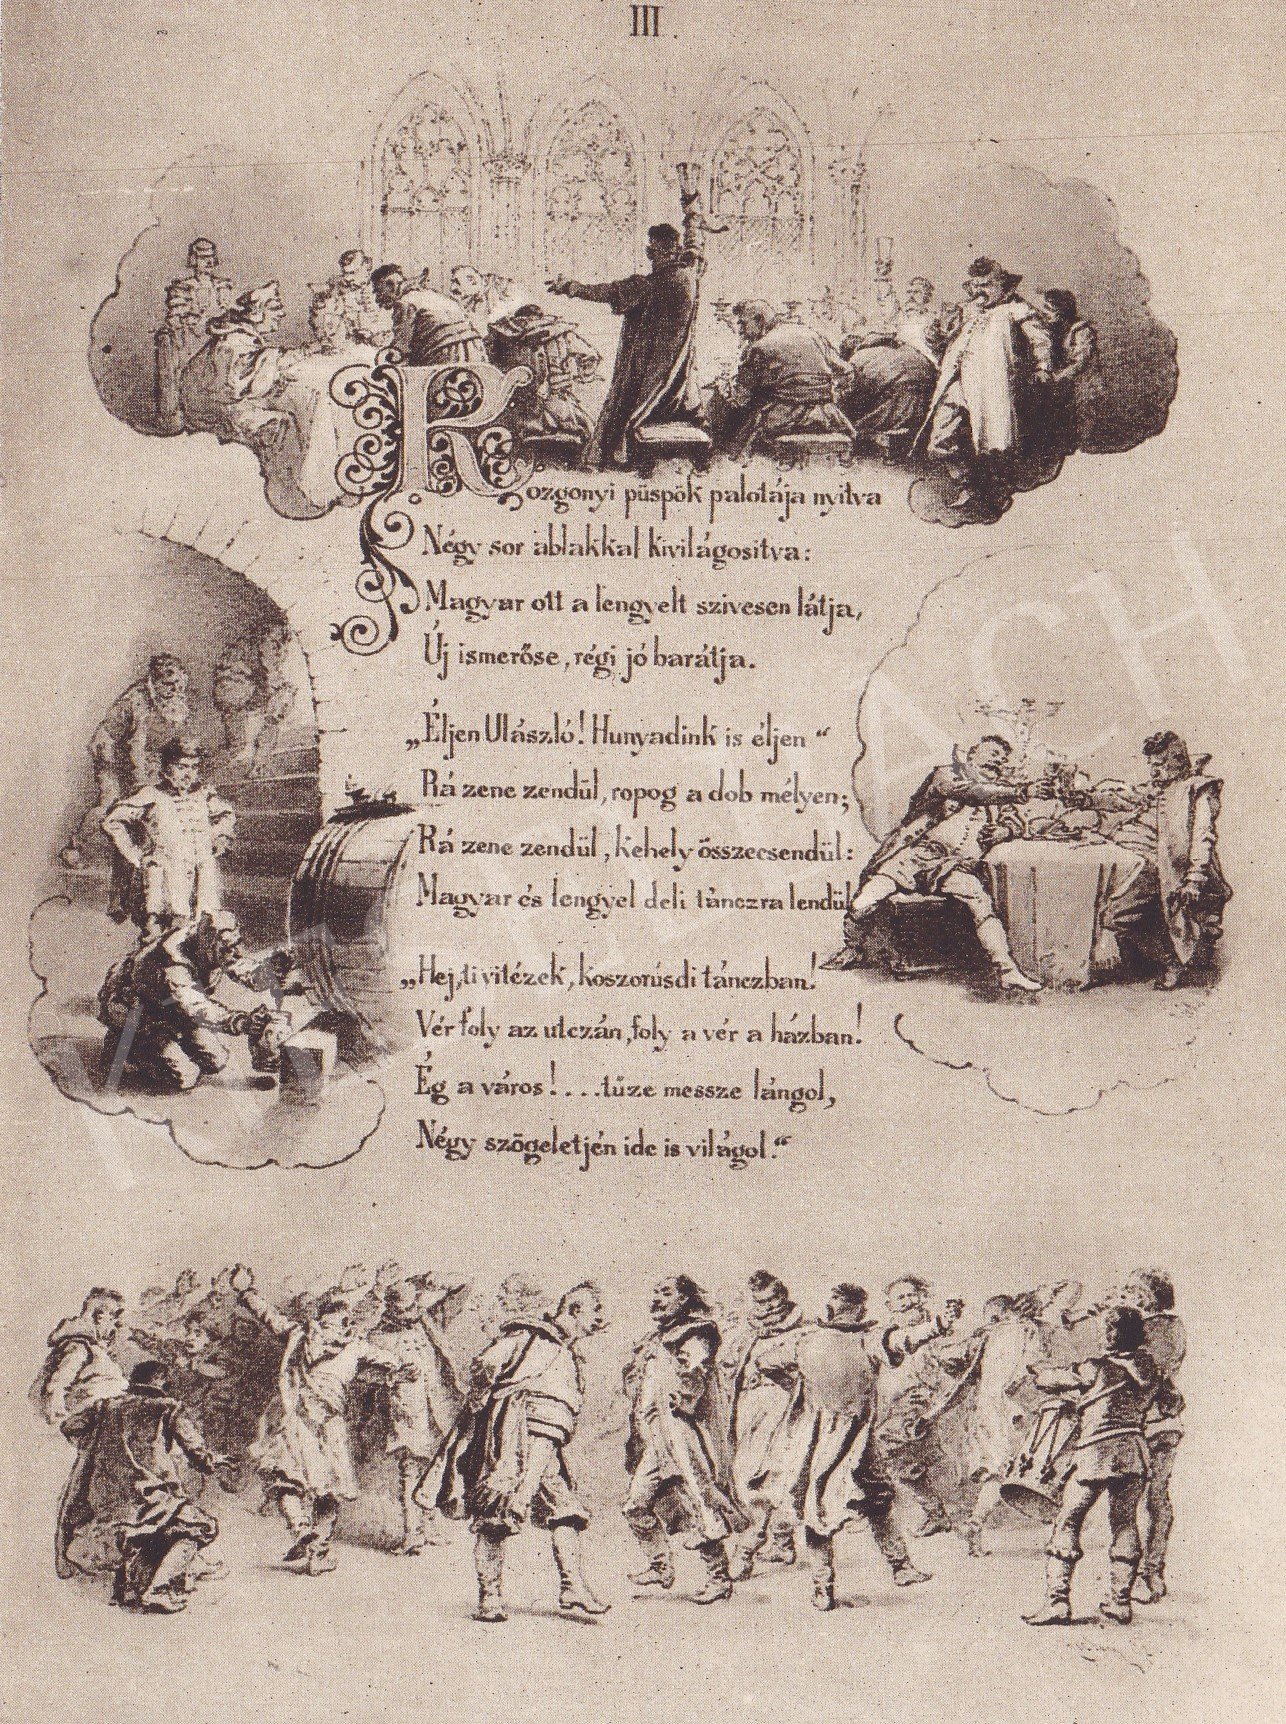 III.
Rozgonyi püspök palotája nyitva
Négy sor ablakkal kivilágositva:
Magyar ott a lengyelt szivesen látja,
Új ismerőse, régi jó barátja.
„Éljen Ulászló! Hunyadink is éljen“
Rá zene zendül, ropog a dob mélyen;
Rá zene zendül, kehely összecsendül:
Magyar és lengyel deli tánczra lendül
„Hej, ti vitézek, koszorús di tánczban!
Vér foly az utczán, foly a vér a házban!
Ég a város!....tüze messze lángol,
Négy szögeletjén ide is világol.“